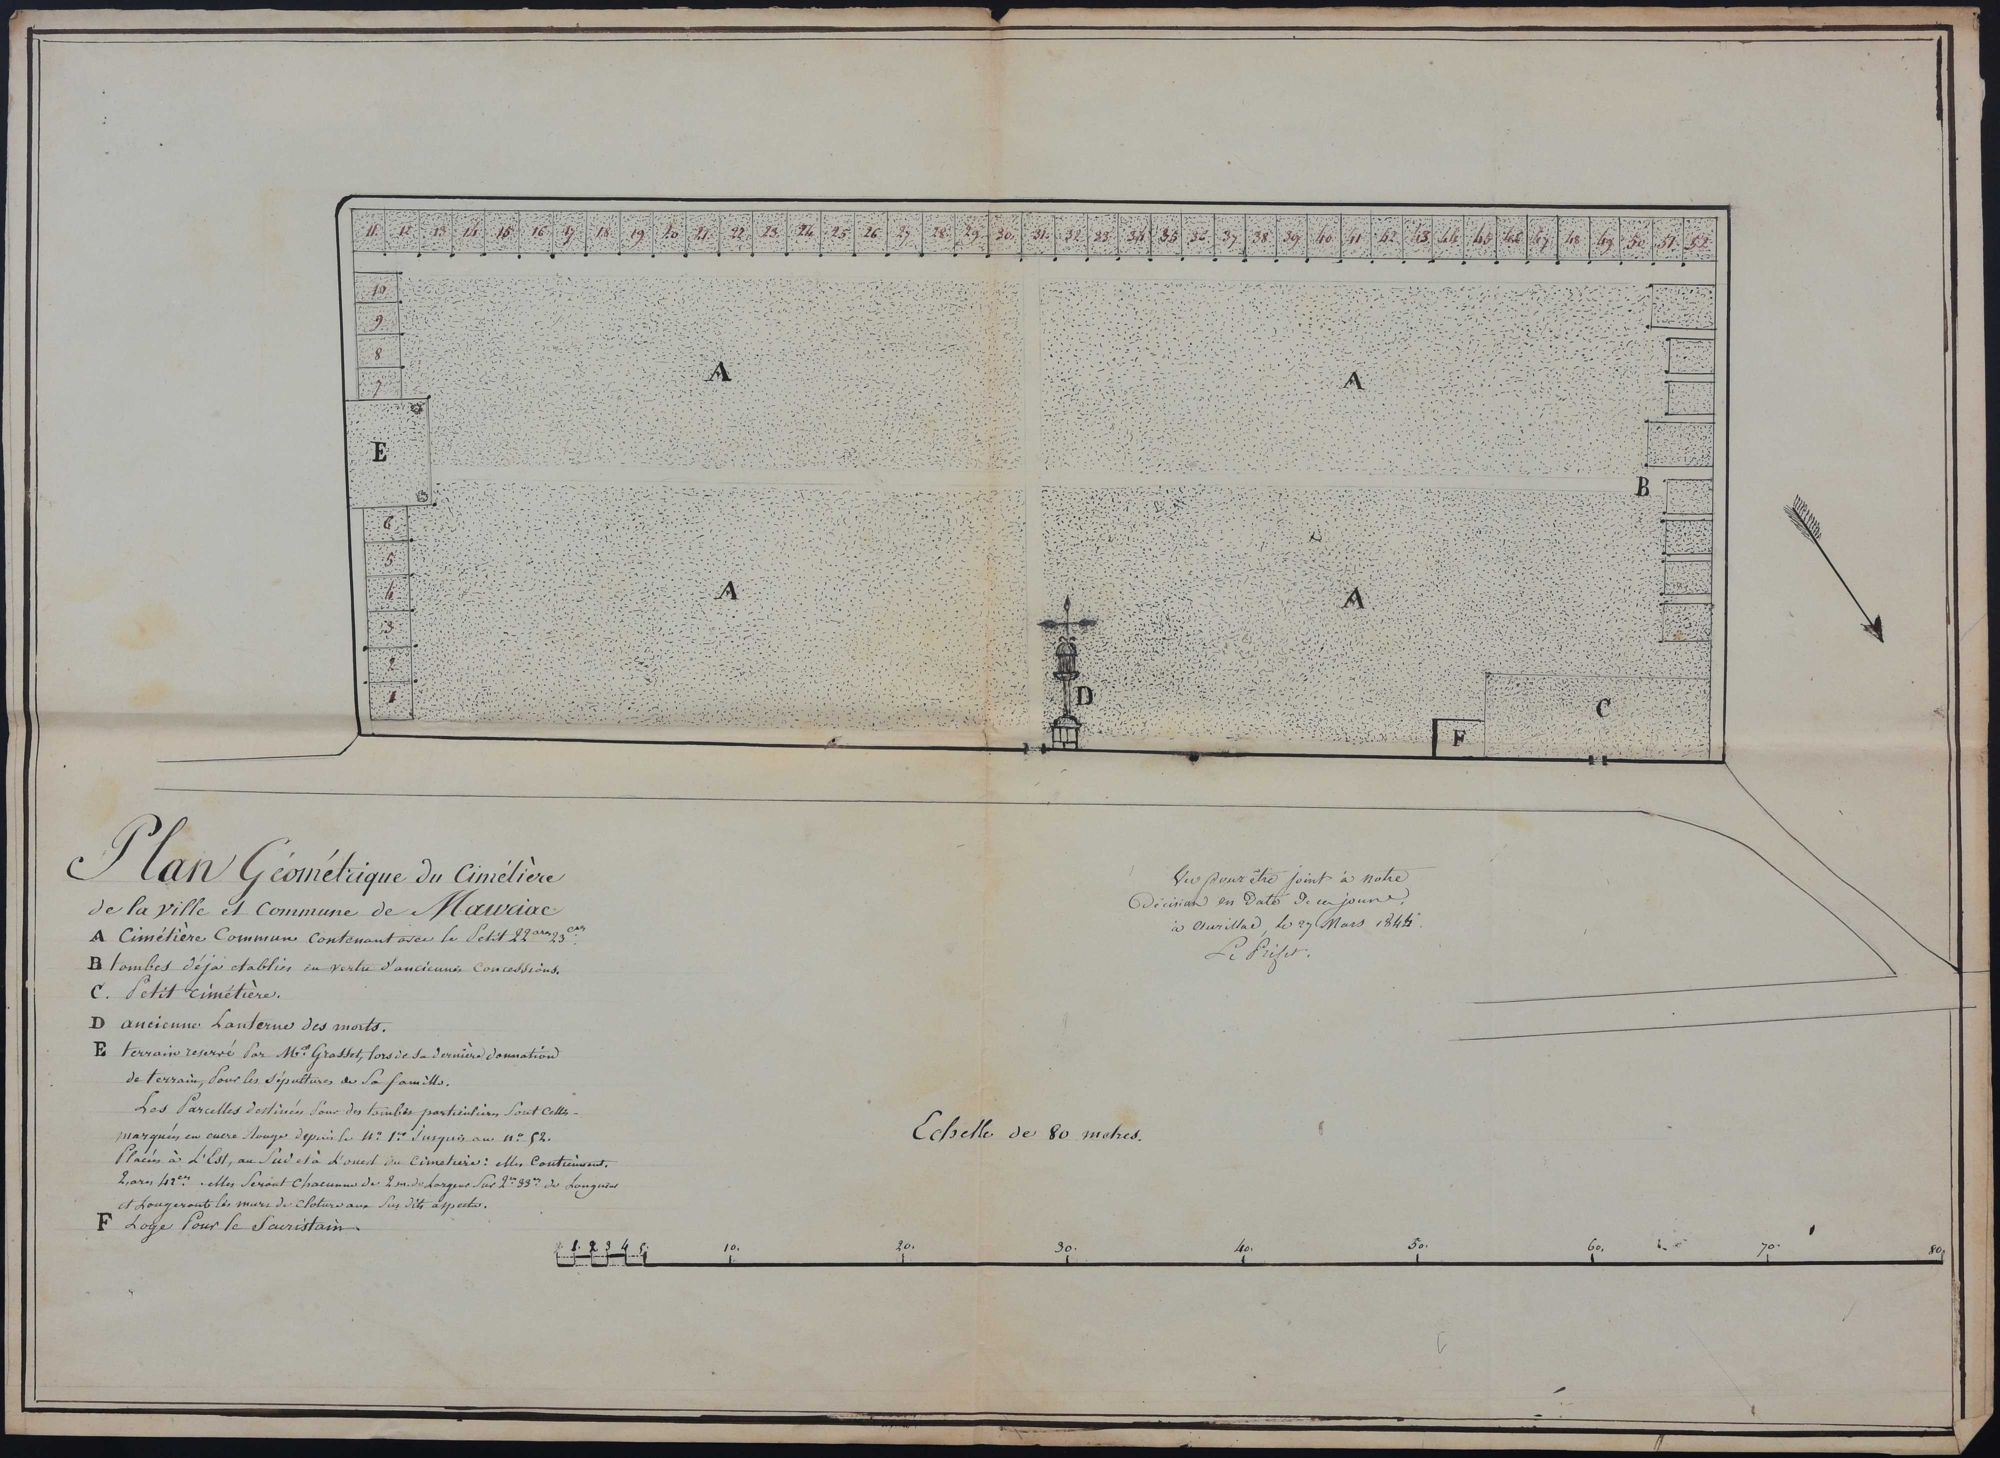 11 12 13 14 15 16 17 18 19 20 21 22 23 24 25 26 27 28 29 30 31 32 33 34 35 36 37 38 39 40 41 42 43 44 45 46 47 48 49 50 51 52
10
9
8
7
A A
E
B
6
5
4
3
2
1
A A
D
C
F
Plan Géométrique du Cimétière
de la Ville et Commune de Mauriac
A Cimétière Commun Contenant avec le Petit 22 ares 23 cen
B tombes déja etablies en vertu d'anciennes Concessions.
C. Petit Cimétière.
D ancienne Lanterne des morts.
E terrain reservé Par Mr. Grasset, lors de sa dernière donnation
de terrain, Pour les sépultures de Sa famille.
Les Parcelles destinées Pour des tombes particulières Sont Celles
marquées en encre Rouge depuis le no. 1er Jusques au no. 52.
Placées à L'Est, au Sud et à L'ouest du Cimetière: elles Contiennent
2 ares 42 cen. elles Seront Chacunne de 2 m. de Largeur Sur 2 m 33 de Longueur
et Longeront les murs de Cloture aux Sus dits aspects.
F Loge Pour le Sacristain.
Vu pour être joint à notre
Décision en Date de ce jour,
à Aurillac, le 27 Mars 1844.
Le Préfet.
Echelle de 80 metres.
1 2 3 4 5 10. 20. 30. 40. 50. 60. 70. 80.